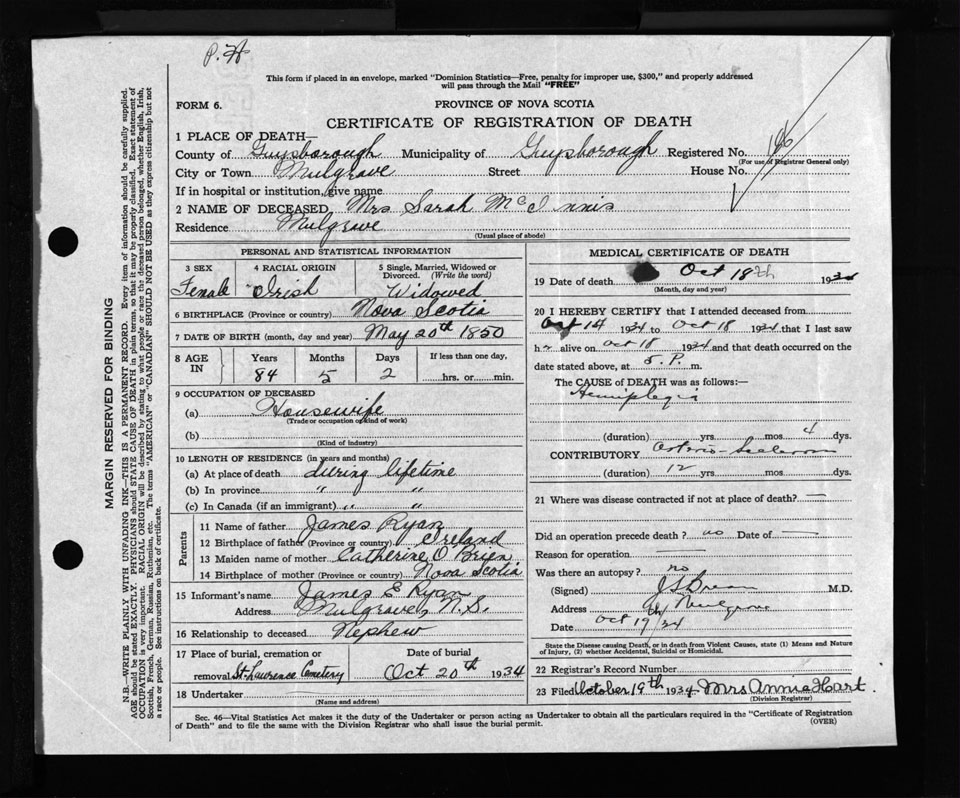 P. H
This form if placed in an envelope, marked "Dominion Statistics—Free, penalty for improper use, $300," and properly addressed
will pass through the Mail "FREE"
FORM 6.
PROVINCE OF NOVA SCOTIA
CERTIFICATE OF REGISTRATION OF DEATH
1 PLACE OF DEATH—
County of Guysborough Municipality of Guysborough Registered No. 186
(For use of Registrar General only)
City or Town Mulgrave Street House No.
If in hospital or institution, give name
2 NAME OF DECEASED Mrs Sarah McInnis
Residence Mulgrave
(Usual place of abode)
PERSONAL AND STATISTICAL INFORMATION
3 SEX
Female
4 RACIAL ORIGIN
Irish
5 Single, Married, Widowed or
Divorced. (Write the word)
Widowed
6 BIRTHPLACE (Province or country) Nova Scotia
7 DATE OF BIRTH (month, day and year) May 20th 1850
8 AGE
IN
Years Months Days If less than one day,
84 5 2 hrs. or min.
9 OCCUPATION OF DECEASED
(a) Housewife
(Trade or occupation or kind of work)
(b)
(Kind of industry)
10 LENGTH OF RESIDENCE (in years and months)
(a) At place of death during lifetime
(b) In province " "
(c) In Canada (if an immigrant) " "
Parents
11 Name of father James Ryan
12 Birthplace of father (Province or country) Ireland
13 Maiden name of mother Catherine O Brien
14 Birthplace of mother (Province or country) Nova Scotia
15 Informant's name James E Ryan
Address Mulgrave, N.S.
16 Relationship to deceased Nephew
17 Place of burial, cremation or
removal St. Lawrence Cemetery
Date of burial
Oct 20th 1934
18 Undertaker
(Name and address)
MEDICAL CERTIFICATE OF DEATH
19 Date of death Oct 18th 1934
(Month, day and year)
20 I HEREBY CERTIFY that I attended deceased from
Oct 14 1934 to Oct 18 1934 that I last saw
h er alive on Oct 18 1934 and that death occurred on the
date stated above, at 5. P. m.
The CAUSE of DEATH was as follows:—
Hemiplegia
(duration) yrs. mos. 4 dys.
CONTRIBUTORY
(duration) 12 yrs. mos. dys.
21 Where was disease contracted if not at place of death? —
Did an operation precede death? no Date of —
Reason for operation —
Was there an autopsy? no
(Signed) M.D.
Address Mulgrave
Date Oct 19th/34
State the Disease causing Death, or in death from Violent Causes, state (1) Means and Nature
of Injury, (2) whether Accidental, Suicidal or Homicidal.
22 Registrar's Record Number
23 Filed October 19th 1934 Mrs Annie Hart.
(Division Registrar)
Sec. 46—Vital Statistics Act makes it the duty of the Undertaker or person acting as Undertaker to obtain all the particulars required in the "Certificate of Registration
of Death" and to file the same with the Division Registrar who shall issue the burial permit. (OVER)
MARGIN RESERVED FOR BINDING
N.B.—WRITE PLAINLY WITH UNFADING INK—THIS IS A PERMANENT RECORD. Every item of information should be carefully supplied.
AGE should be stated EXACTLY. PHYSICIANS should STATE CAUSE OF DEATH in plain terms, so that it may be properly classified. Exact statement of
OCCUPATION is very important. RACIAL ORIGIN will be described by stating to what people or race the deceased person belonged, whether English, Irish,
Scottish, French, German, Russian, Ruthenian, etc. The terms "AMERICAN" or "CANADIAN" SHOULD NOT BE USED as they express citizenship but not
a race or people. See instructions on back of certificate.